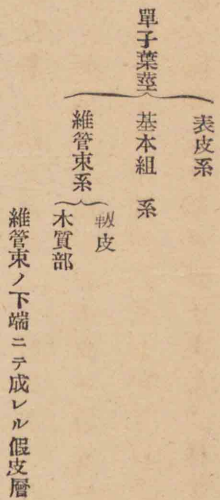 單子葉莖
表皮系
基本組 系
維管束系
靱皮
木質部
維管束ノ下端ニテ成レル假皮層